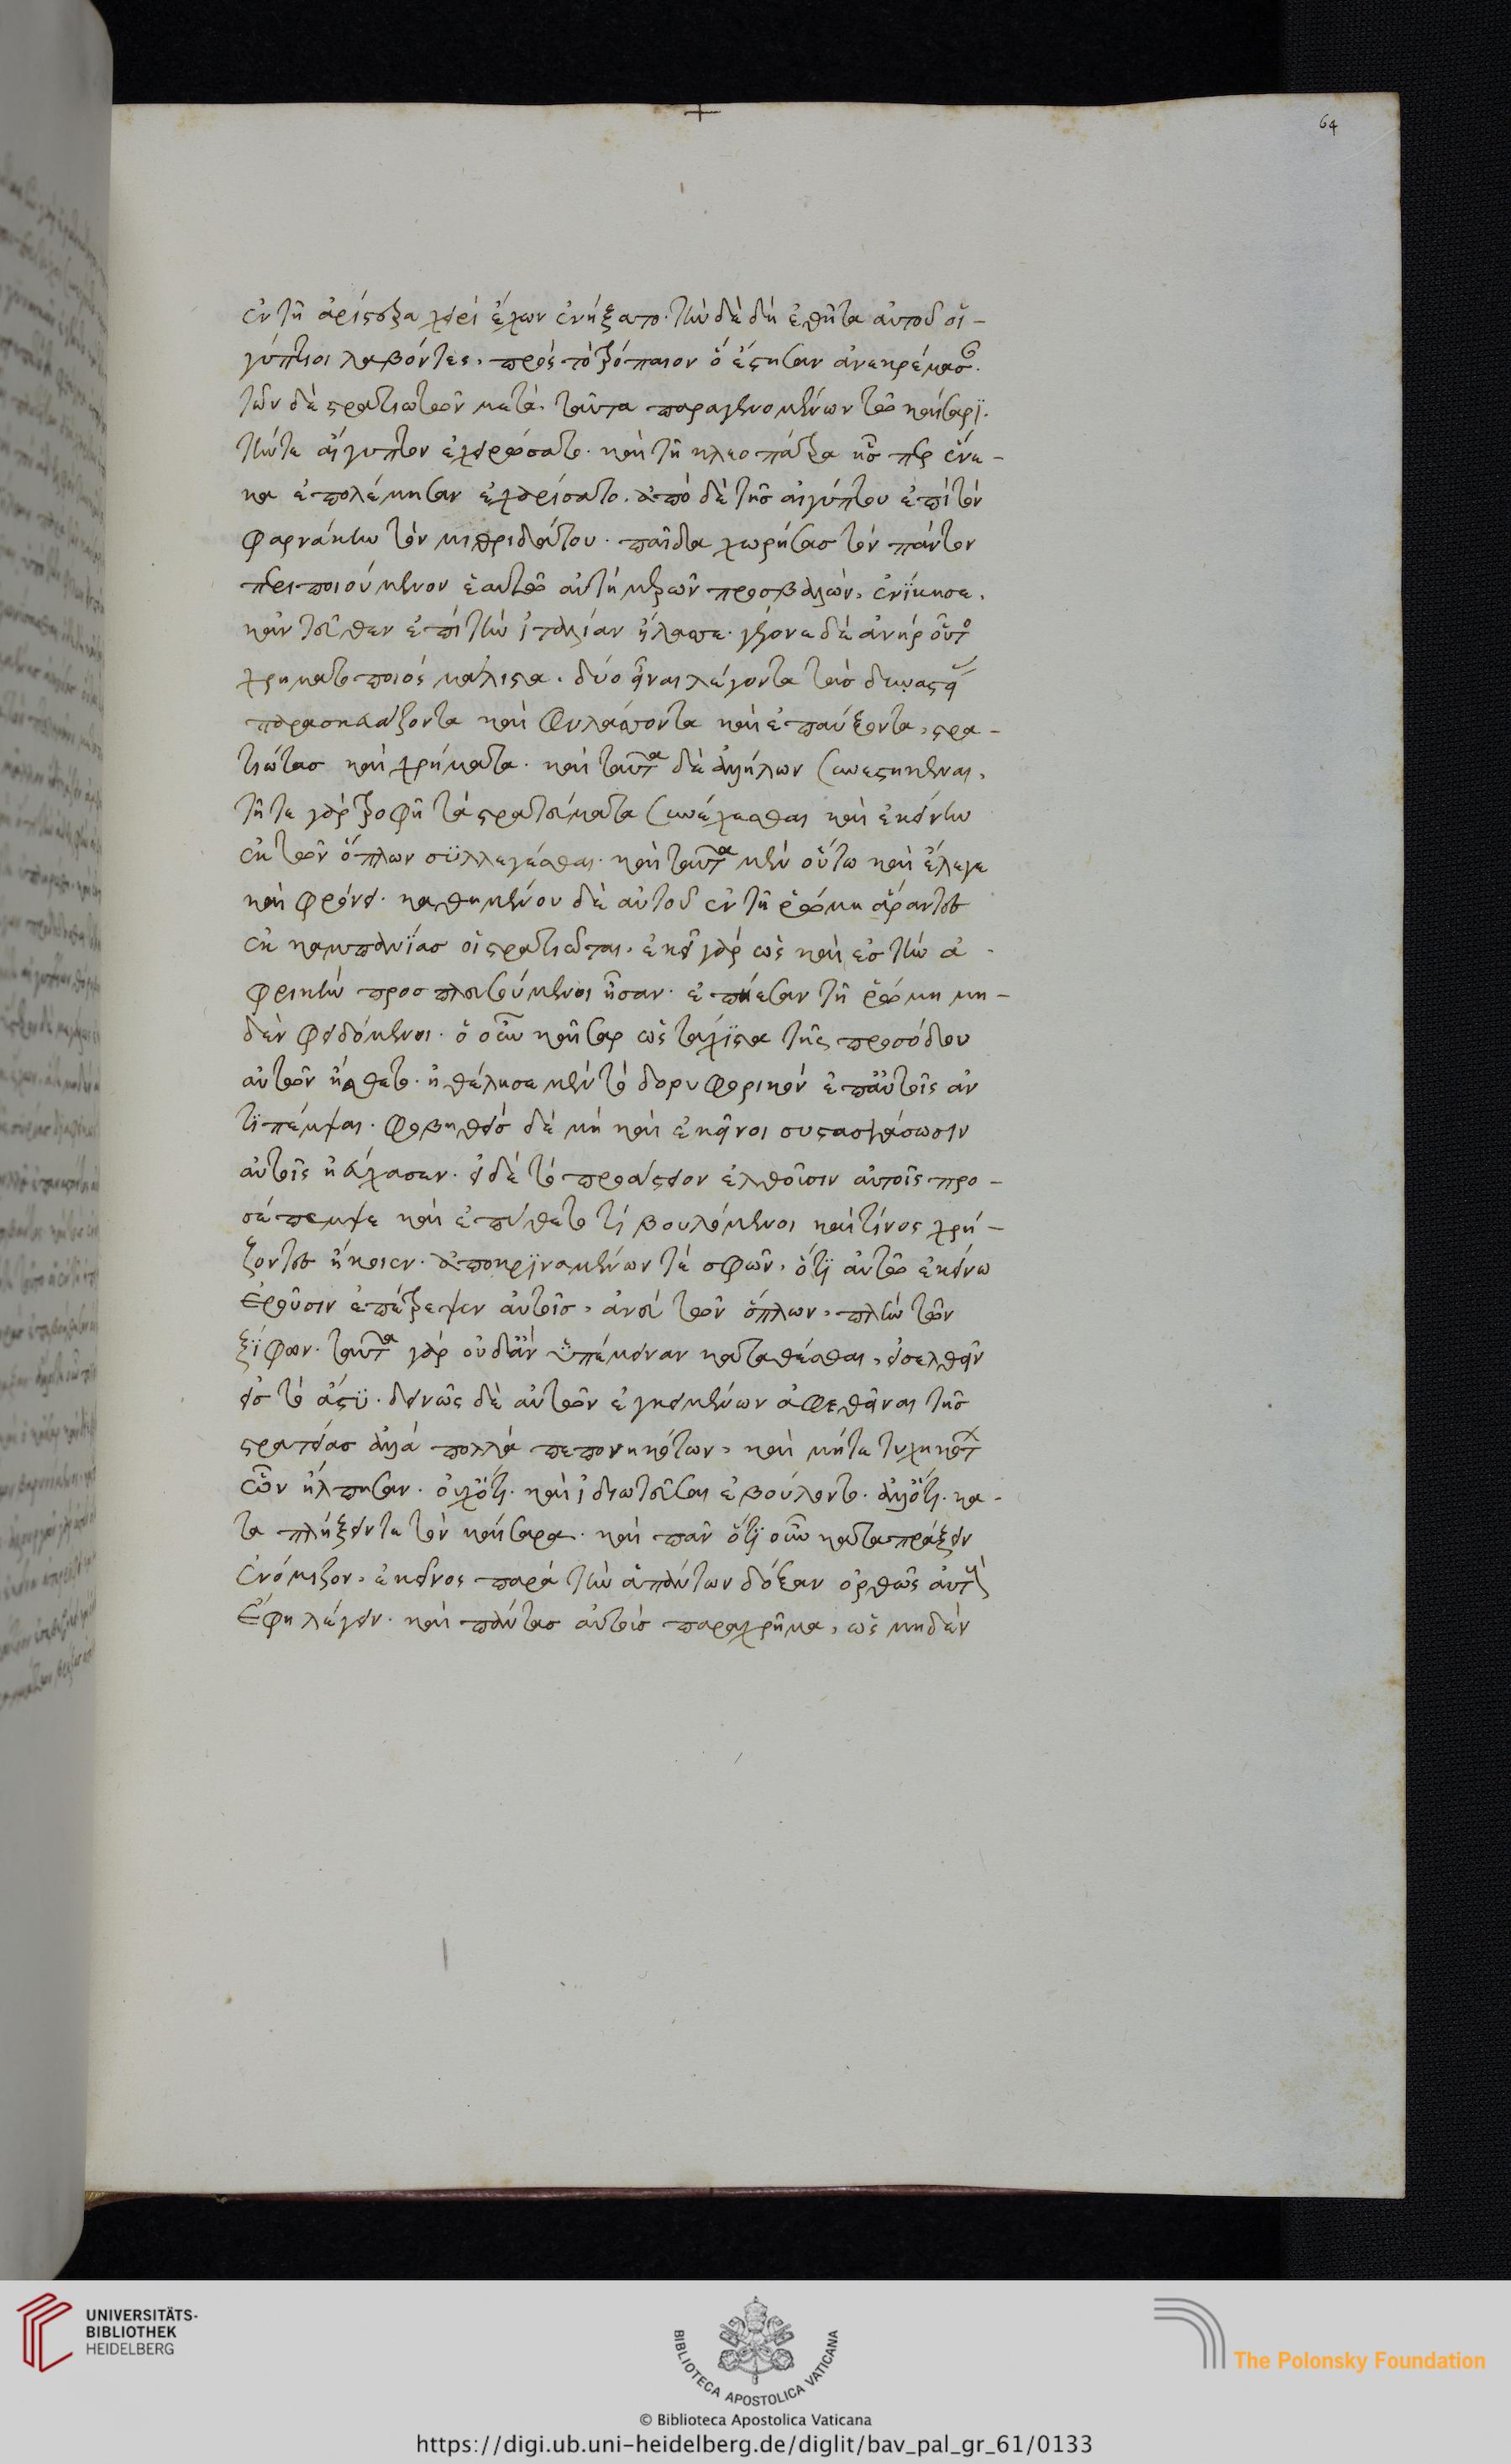 64
ἐν τῇ ἀριστερᾷ χειρὶ ἔχων ἐνήξατο. τὴν δὲ δὴ ἐσθῆτα αὐτοῦ οἱ αἰ-
γύπτιοι λαβόντες, πρὸς τὸ τρόπαιον ὃ ἔστησαν ἀνεκρέμασαν.
τῶν δὲ στρατιωτῶν μετὰ ταῦτα παραγενομένων τῷ καίσαρι.
τήν τε αἴγυπτον ἐχειρώσατο. καὶ τῇ κλεοπάτρα ἧς περ ἕνε-
κα ἐπολέμησαν ἐχαρίσατο. ἀπὸ δὲ τῆς αἰγύπτου ἐπὶ τὸν
φαρνάκην τὸν μιθριδάτου παῖδα χωρήσας τὸν πόντον
περιποιούμενον ἑαυτῷ αὐτῆ μερῶν προσβαλὼν, ἐνίκησε.
κἀντεῦθεν ἐπὶ τὴν ἰταλίαν ἤλασε. γέγονε δὲ ἀνὴρ οὗτος
χρηματοποιὸς μάλιστα. δύο εἶναι λέγοντα τὰς δυναστείας
παρασκευάζοντα καὶ φυλάττοντα καὶ ἐπαύξοντα, στρα-
τιώτας καὶ χρήματα. καὶ ταῦτα δὲ ἀλλήλων συνεστηκέναι.
τῇ τε γὰρ τροφῇ τὰ στρατεύματα συνέχεσθαι καὶ ἐκείνην
ἐκ τῶν ὅπλων συλλεγέσθαι. καὶ ταῦτα μὲν οὕτω καὶ ἔλεγε
καὶ φρόνει. καθημένου δὲ αὐτοῦ ἐν τῇ ῥώμη ἄραντες
ἐκ καμπανίας οἱ στρατιῶται, ἐκεῖ γὰρ ὡς καὶ ἐς τὴν ἀ-
φρικὴν προσπλευσούμενοι ἦσαν. ἐπήεσαν τῇ ῥώμη μη-
δὲν φειδόμενοι. ὁ οὖν καῖσαρ ὡς τάχιστα τῆς προσόδου
αὐτῶν ἤσθετο. ἠθέλησε μὲν τὸ δορυφορικὸν ἐπ αὐτοῖς ἀν
τιπέμψαι. φοβηθεὶς δὲ μὴ καὶ ἐκεῖνοι συστασιάσωσιν
αὐτοῖς ἡσύχασεν. εἰ δὲ τὸ προάστειον ἐλθοῦσιν αὐτοῖς προ-
σέπεμψε καὶ ἐπύθετο τί βουλόμενοι καὶ τίνος χρή-
ζοντες ἥκοιεν. ἀποκριναμένων τε σφῶν, ὅτι αὐτῷ ἐκείνω
ἐροῦσιν ἐπέτρεψεν αὐτοῖς, ἄνευ τῶν ὅπλων, πλὴν τῶν
ξίφων. ταῦτα γὰρ οὐδ ἂν ὑπέμειναν καταθέσθαι, εἰσελθεῖν
εἰς τὸ ἄστυ. δεινῶς δὲ αὐτῶν ἐγκειμένων ἀφεθῆναι τῆς
στρατείας ἀλλὰ πολλὰ πεπονηκότων, καὶ μήτε τυχηκότων
ὧν ἤλπησαν. οὐχ ὅτι καὶ ἰδιωτεῦσαι ἐβούλοντο. ἀλλ ὅτι κα-
τα πλήξειν τε τὸν καίσαρα. καὶ πᾶν ὅτι οὖν καταπράξειν
ἐνόμιζον. ἐκεῖνος παρὰ τὴν ἁπάντων δόξαν ὀρθῶς αὐτοὺς
ἔφη λέγειν. καὶ πάντας αὐτοὺς παραχρῆμα, ὡς μηδὲν
UNIVERSITÄTS-
BIBLIOTHEK
HEIDELBERG
BIBLIOTECA APOSTOLICA VATICANA
The Polonsky Foundation
© Biblioteca Apostolica Vaticana
https://digi.ub.uni-heidelberg.de/diglit/bav_pal_gr_61/0133